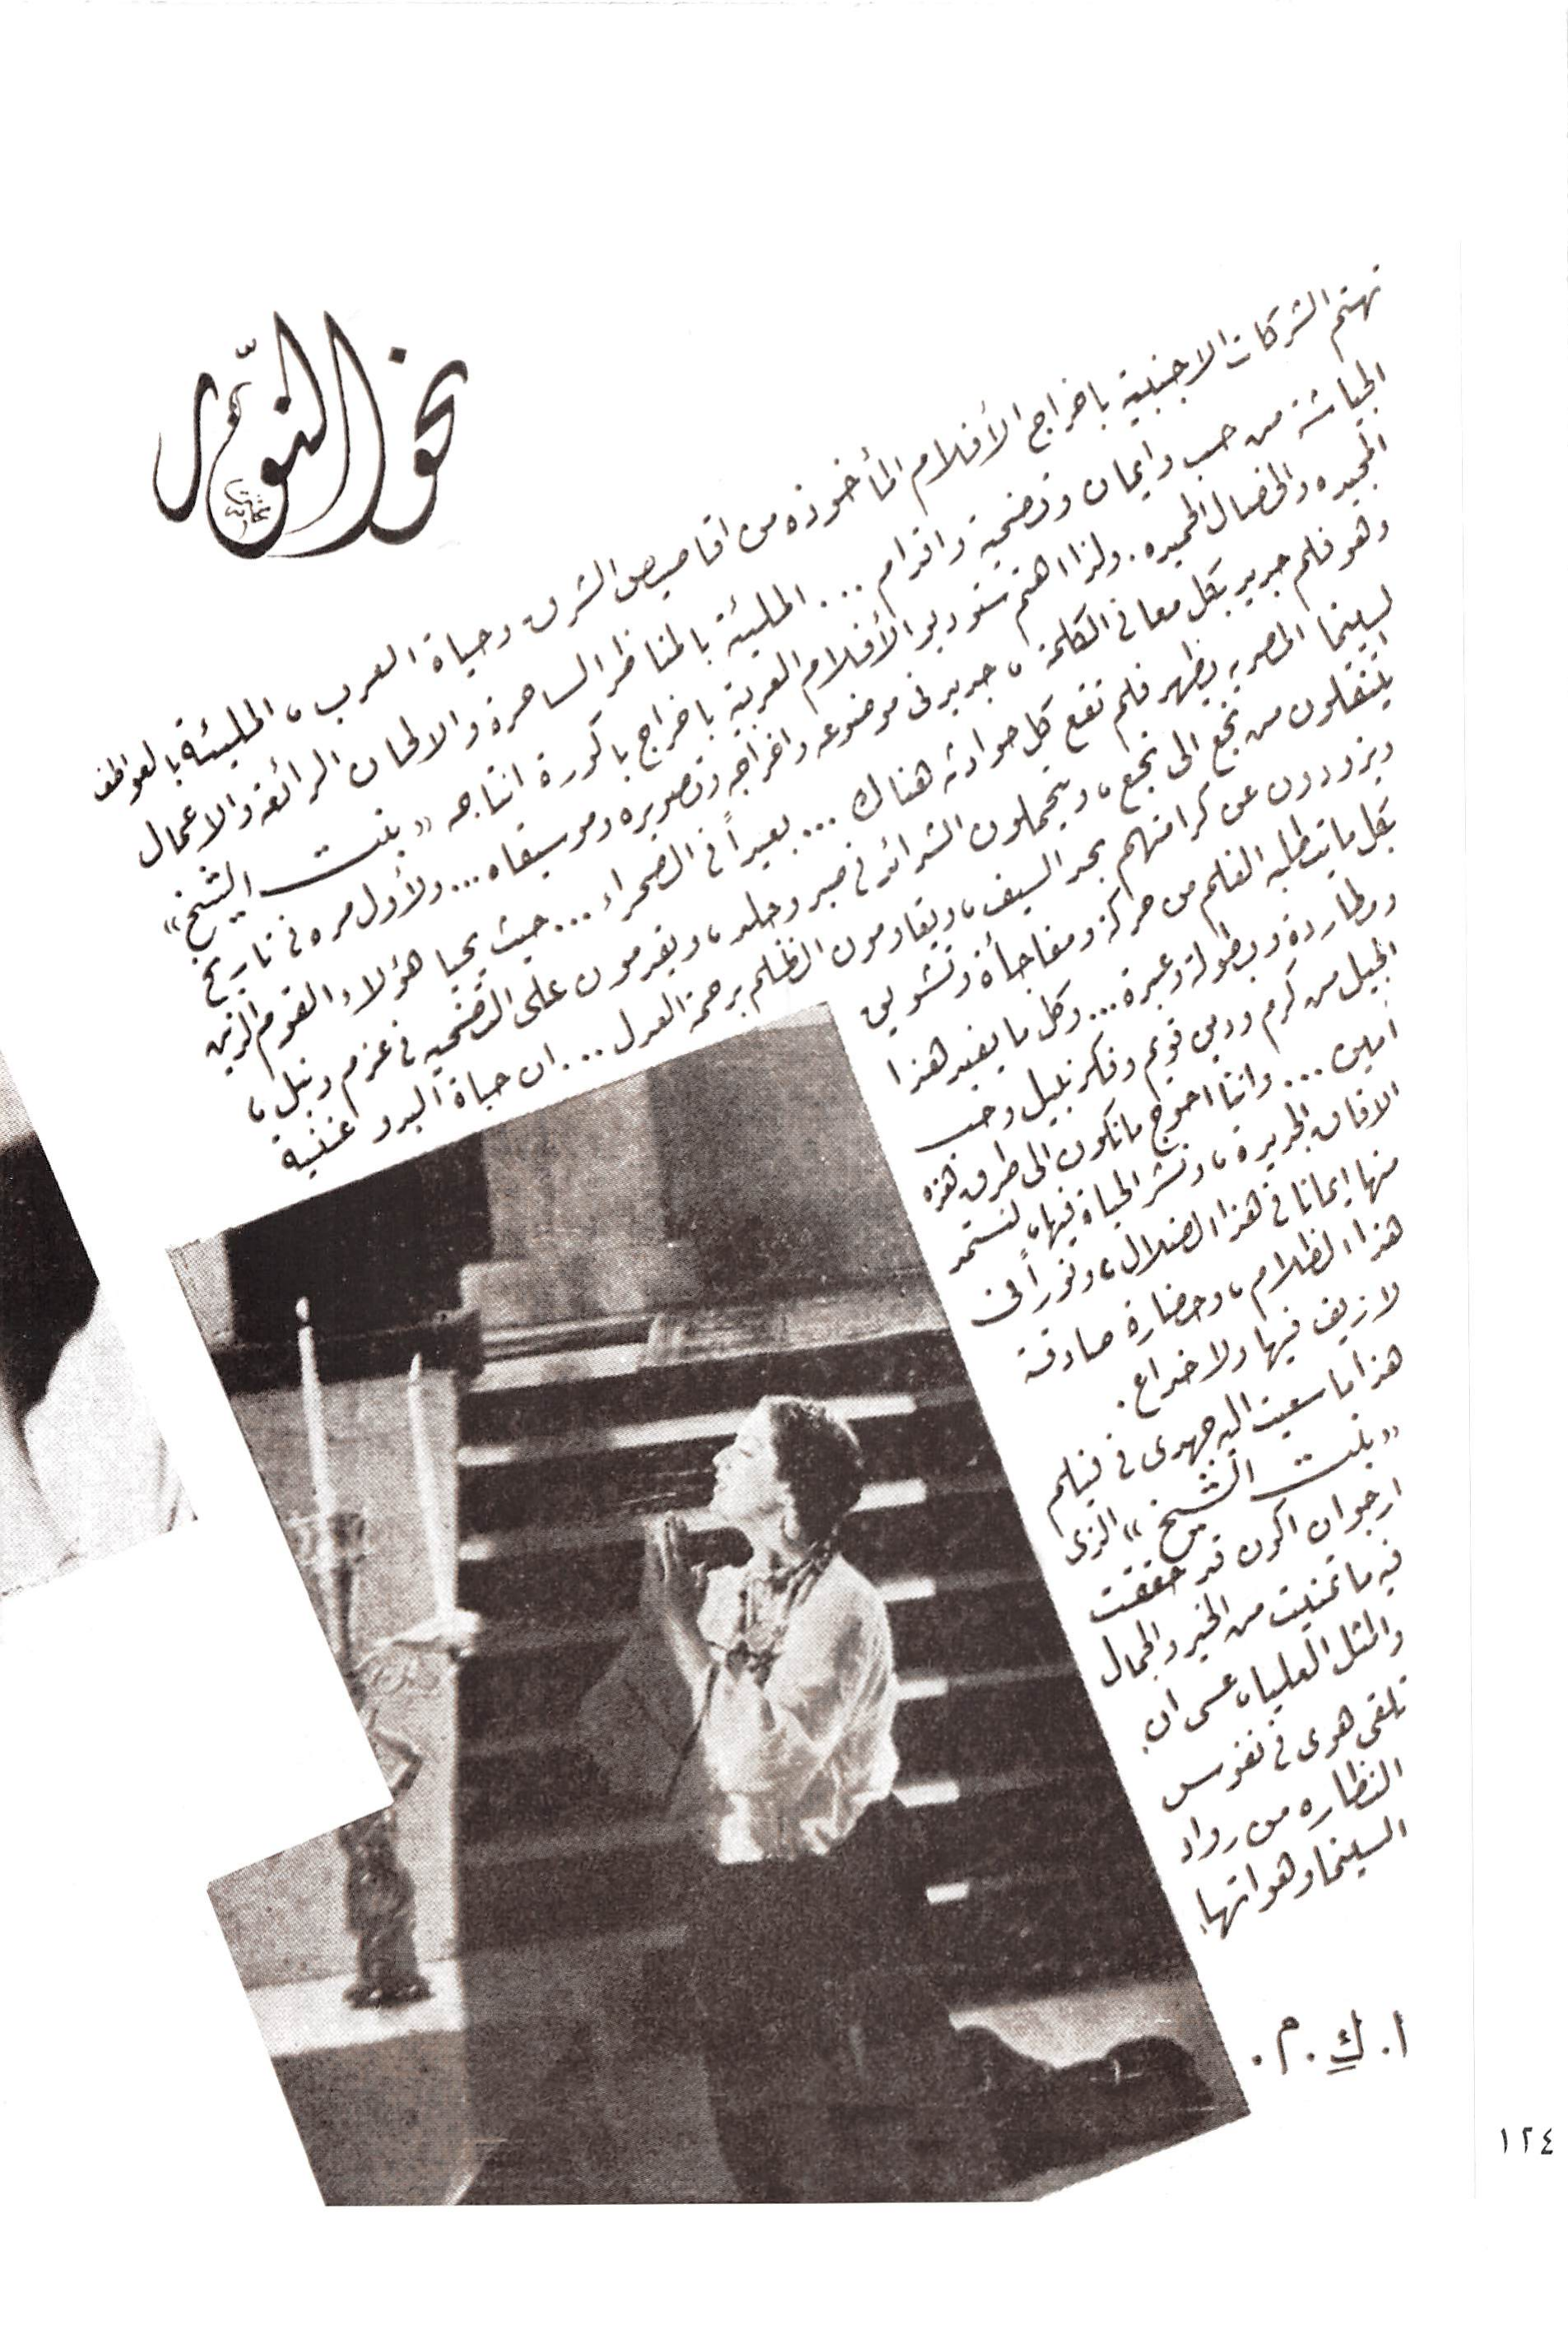 نحو النّور
تهتم الشركات الاجنبية باخراج الأفلام المأخوذه من اقاصيص الشرق وحياة العرب ، المليئة بالعواطف
الجياشة من حب وايمان وتضحية واقدام ... المليئة بالمناظر الساحرة والالحان الرائعة والاعمال
المجيده والخصال الحميده . ولذا اهتم ستوديو الأفلام العربية باخراج باكورة انتاجه « بنت الشيخ »
وهو فلم جديد بكل معانى الكلمة ، جديد فى موضوعه واخراجه وتصويره وموسيقاه ... ولأول مره فى تاريخ
السينما المصريه يظهر فلم تقع كل حوادثه هناك ... بعيداً فى الصحراء ... حيث يحيا هؤلاء القوم الذين
يتنقلون من نجع الى نجع ، ويتحملون الشدائد فى صبر وجلد ، ويقدمون على التضحيه فى عزم ونبل ،
ويزودون عن كرامتهم بحد السيف ، ويقاومون الظلم برحمة العدل ... ان حياة البدو غنية
بكل ما يتطلبه الفلم من حركة ومفاجأة وتشويق
ومطاردة وبطولة وعبرة ... وكل ما يفيد هذا
الجيل من كرم ودين قويم وفكر نبيل وحب
أمين ... واننا احوج ما نكون الى طرق هذه
الافاق الجديدة ، ونشر الحياة فيها ، لنستمد
منها ايمانا فى هذا الضلال ، ونوراً فى
هذا الظلام ، وحضارة صادقة
لا زيف فيها ولا خداع .
هذا ما سعيت اليه جهدى فى فيلم
« بنت الشيخ » الذى
ارجو ان اكون قد حققت
فيه ما تمنيت من الخير والجمال
والمثل العليا ، عسى ان
تلقى هوى فى نفوس
النظاره من رواد
السينما وهواتها .
ا . ك . م .
١٢٤